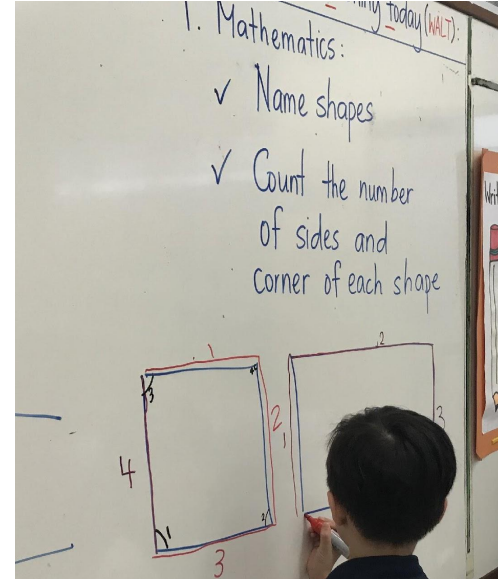 today (WALT):
1. Mathematics:
✓ Name shapes
✓ Count the number
of sides and
corner of each shape
1
2
3
4
3
4
1
2
1
2
3
Writ